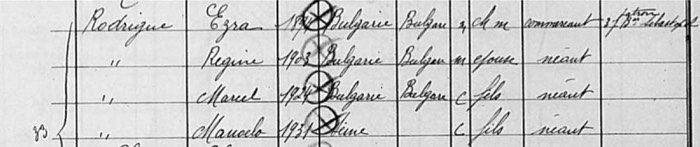 Rodrigue Ezra 1894 Bulgarie Bulgare m ch m commercant patron
" Regine 1903 Bulgarie Bulgare m epouse néant
" Marcel 1924 Bulgarie Bulgare c fils néant
33 " Manoelo 1931 Seine c fils néant